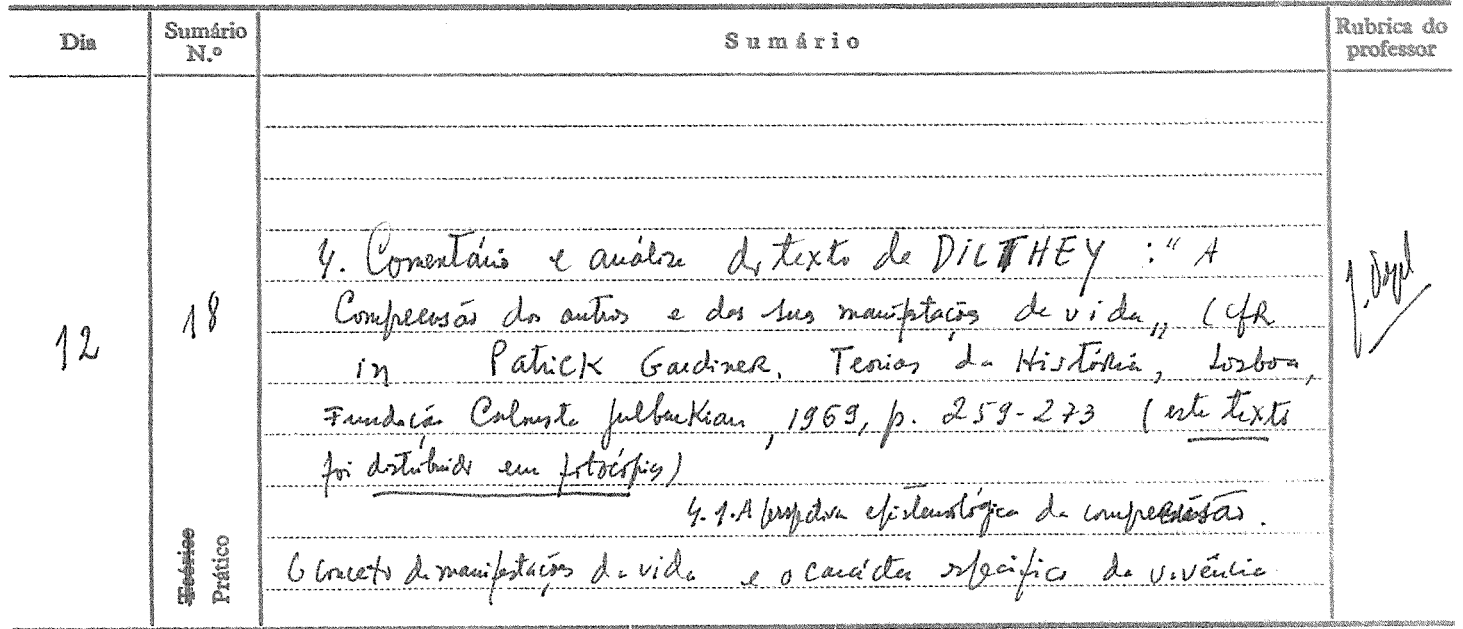 Dia
Sumário
N.º
Sumário
Rubrica do
professor
12
18
Teórico
Prático
4. Comentário e análise do texto de DILTHEY : "A
Compreensão dos outros e das suas manifestações de vida" (cfR
in Patrick Gardiner, Teorias da História, Lisboa,
Fundação Calouste Gulbenkian, 1969, p. 259-273 (este texto
foi distribuído em fotocópias)
4.1. A perspectiva epistemológica da compreensão.
O conceito de manifestações da vida e o carácter específico da vivência